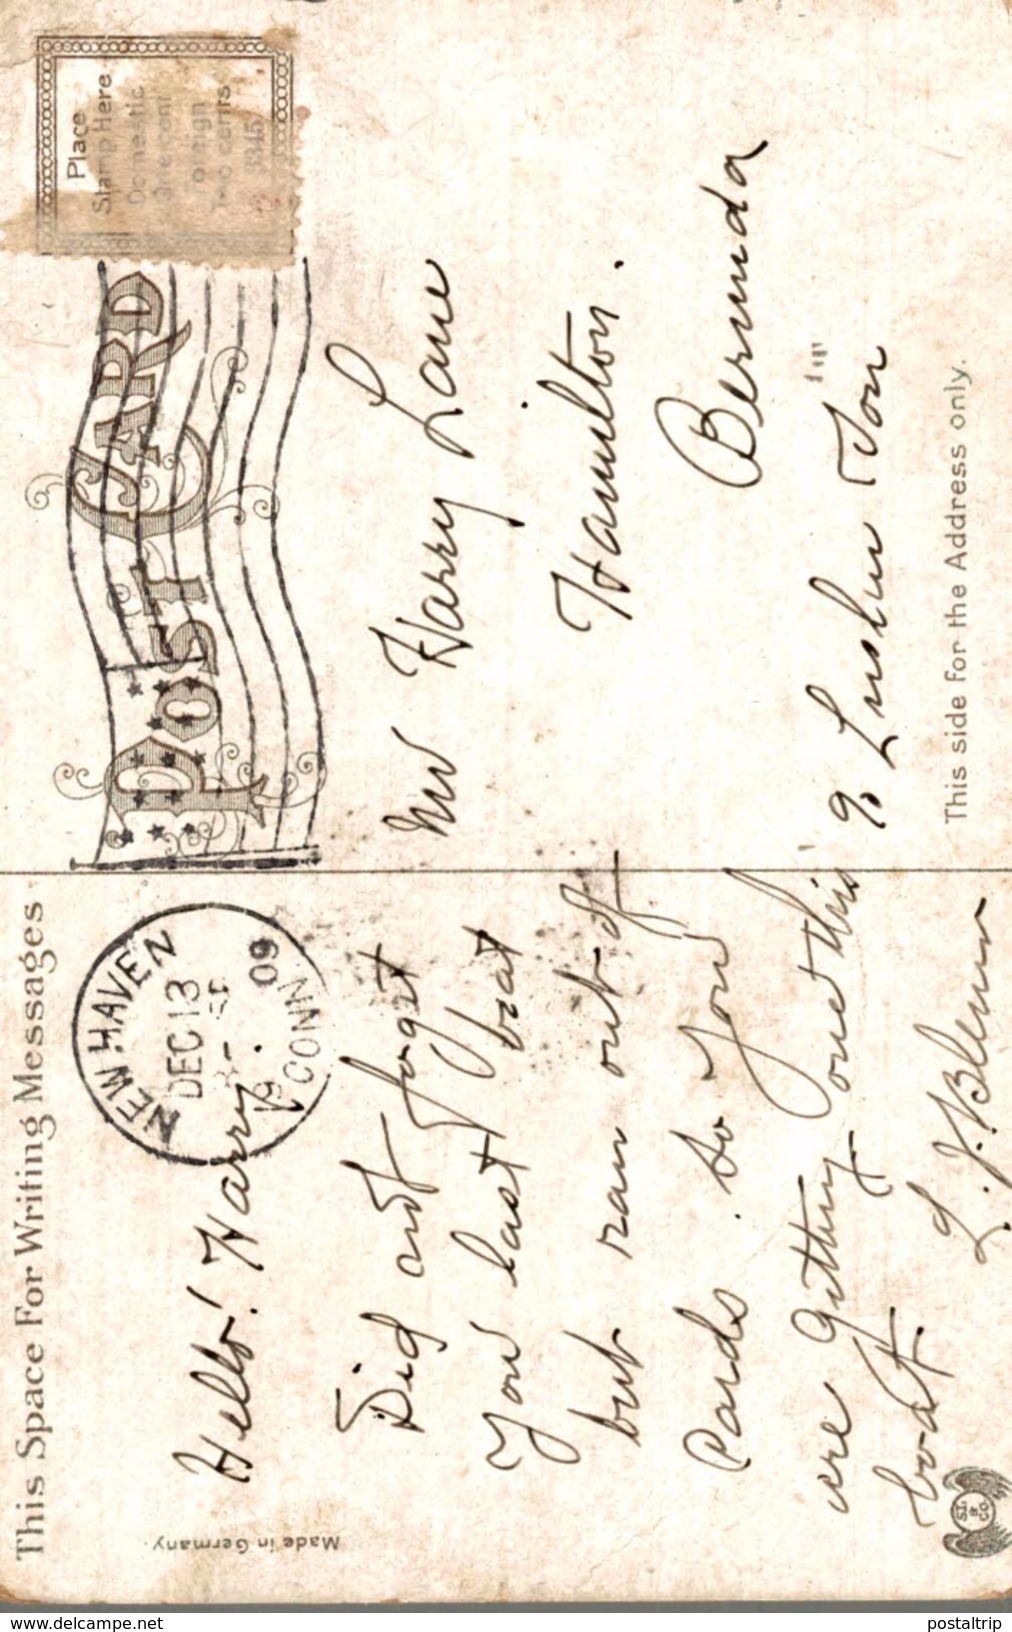 This Space For Writing Messages
POST CARD
Place
Stamp Here
Domestic
One cent
Foreign
Two cents
3345
NEW HAVEN
DEC 13
09
CONN.
Hello! Harry.
Did not forget
You last boat
but ran out of
Cards. So You
are getting one this
boat
L. J. Blenn
Mr Harry Lane
Hamilton.
Bermuda
This side for the Address only.
Made in Germany.
S.L. & CO
www.delcampe.net
postaltrip